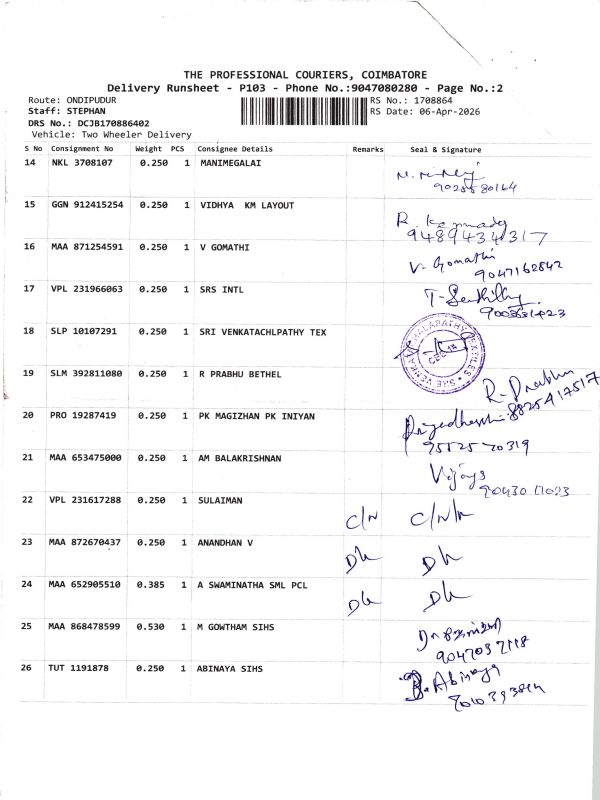 THE PROFESSIONAL COURIERS, COIMBATORE
Delivery Runsheet - P103 - Phone No.:9047080280 - Page No.:2
Route: ONDIPUDUR
RS No.: 1708864
Staff: STEPHAN
RS Date: 06-Apr-2026
DRS No.: DCJB170886402
Vehicle: Two Wheeler Delivery
S No Consignment No Weight PCS Consignee Details Remarks Seal & Signature
14 NKL 3708107 0.250 1 MANIMEGALAI
15 GGN 912415254 0.250 1 VIDHYA KM LAYOUT
R.
9489434317
16 MAA 871254591 0.250 1 V GOMATHI
V. Gomathi
9047162842
17 VPL 231966063 0.250 1 SRS INTL
18 SLP 10107291 0.250 1 SRI VENKATACHLPATHY TEX
19 SLM 392811080 0.250 1 R PRABHU BETHEL
R. Prabhu
8825417517
20 PRO 19287419 0.250 1 PK MAGIZHAN PK INIYAN
21 MAA 653475000 0.250 1 AM BALAKRISHNAN
Vijaya
22 VPL 231617288 0.250 1 SULAIMAN
C/N
23 MAA 872670437 0.250 1 ANANDHAN V
DL DL
24 MAA 652905510 0.385 1 A SWAMINATHA SML PCL
DL DL
25 MAA 868478599 0.530 1 M GOWTHAM SIHS
26 TUT 1191878 0.250 1 ABINAYA SIHS
B. Abinaya